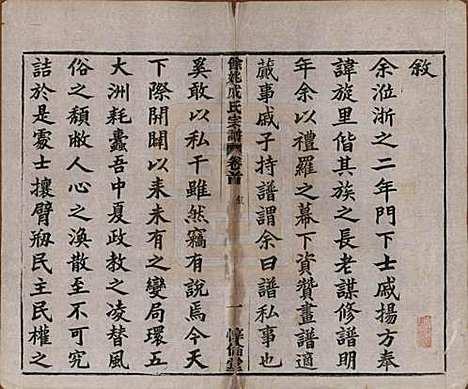 敘
余涖浙之二年門下士戚揚方奉
諱旋里偕其族之長老謀修譜明
年余以禮羅之幕下資贊畫譜適
蕆事戚子持譜謂余曰譜私事也
餘姚戚氏宗譜 卷首 敘 一 惇倫堂
奚敢以私干雖然竊有說焉今天
下際開闢以來未有之變局環五
大洲耗蠹吾中夏政教之凌替風
俗之頹敝人心之渙散至不可究
詰於是處士攘臂剏民主民權之